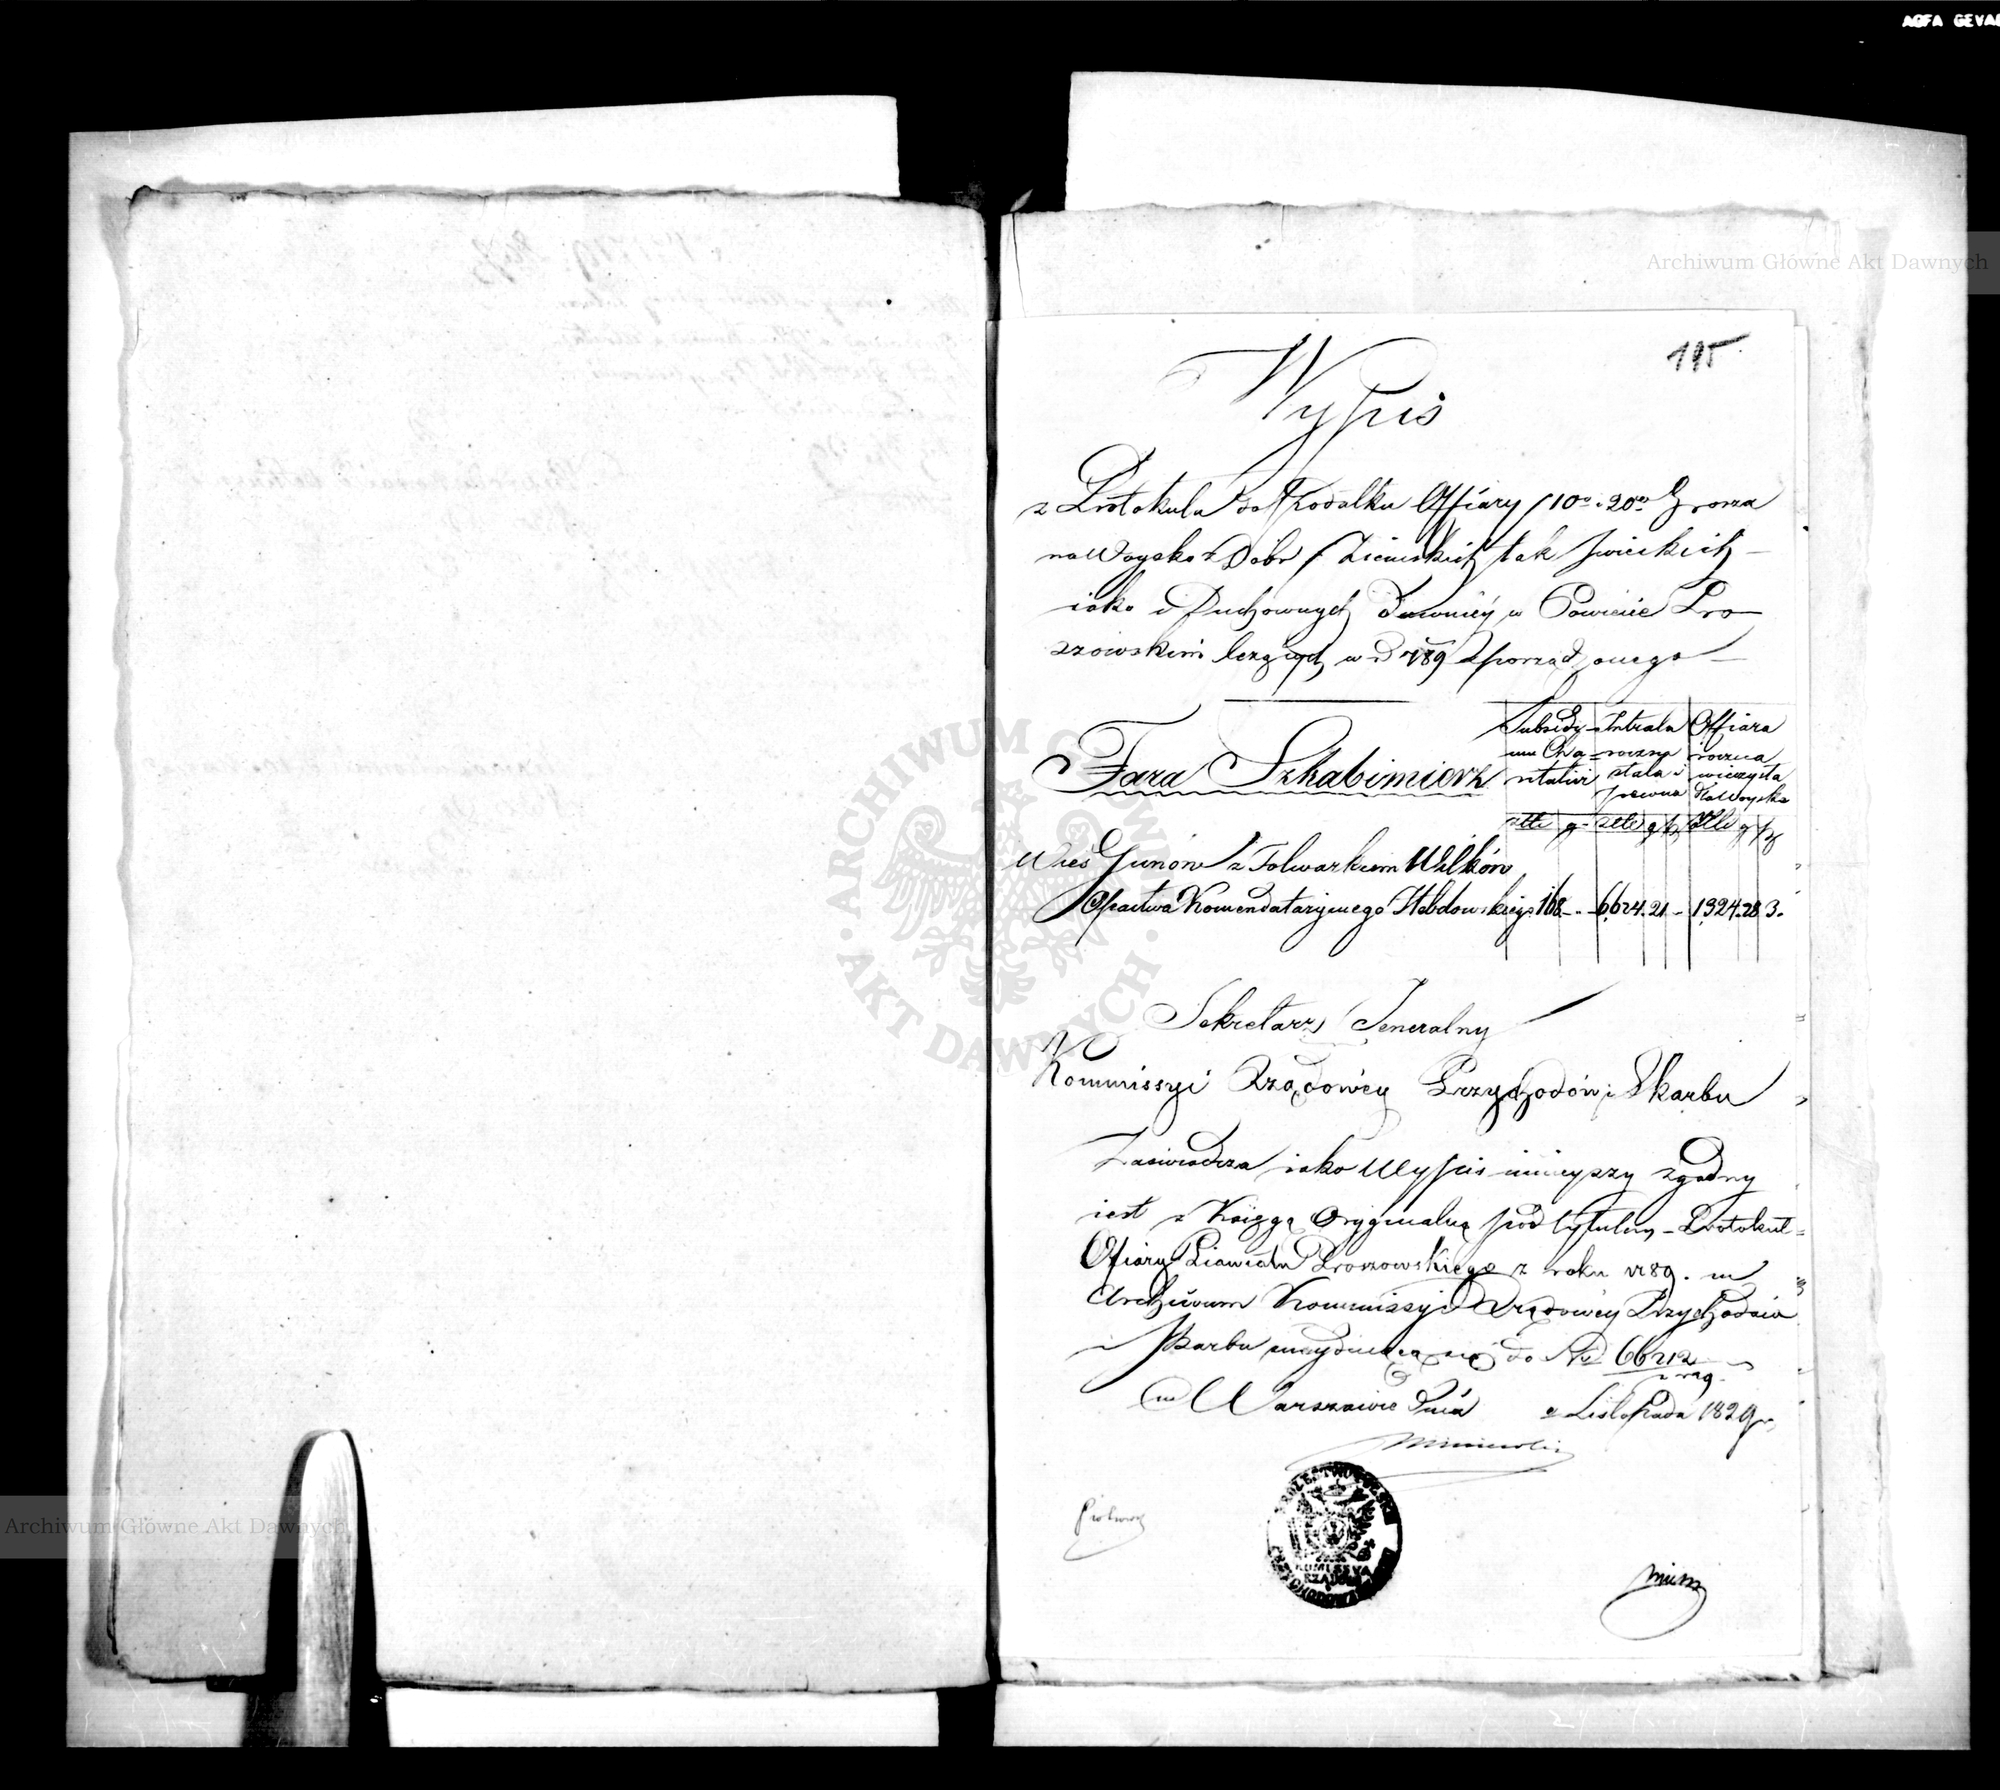 AGFA GEVAE
Archiwum Główne Akt Dawnych
195.
Wypis
z Protokułu do Podatku Offiary / 10o i 20o Grosza
na Woysko z Dóbr / Ziemskich tak Swieckich
iako i Duchownych dawniey w Powiecie Pro
szowskim leżących w r. 1789 Sporządzonego
Fara Szkabimierz
Subsidy- Intrata Offiara
um Cha- roczna roczna
ritativi stała i wieczysta
pewna dla Woyska
złł g złł g złł g
Wieś Gunów z Folwarkiem Wilków
Opactwa Komendataryinego Hebdowskiego 168 - 6624.21 - 1324.28 3.
Sekretarz Jeneralny
Kommissyi Rządowéy Przychodów i Skarbu
Zaswiadcza iako Wypis ninieyszy zgodny
iest z Księgą Oryginalną pod tytułem Protokuł
Ofiary Powiatu Proszowskiego z roku 1789. w
Archiwum Kommissyi Rządowéy Przychodów
i Skarbu znayduiącą się do Nru 66212
w Warszawie Dnia Listopada 1829 r.
KRÓLESTWO POLSKIE
KOMISSYA
RZĄDOWA
PRZYCHODÓW
ARCHIWUM GŁÓWNE
AKT DAWNYCH
Archiwum Główne Akt Dawnych